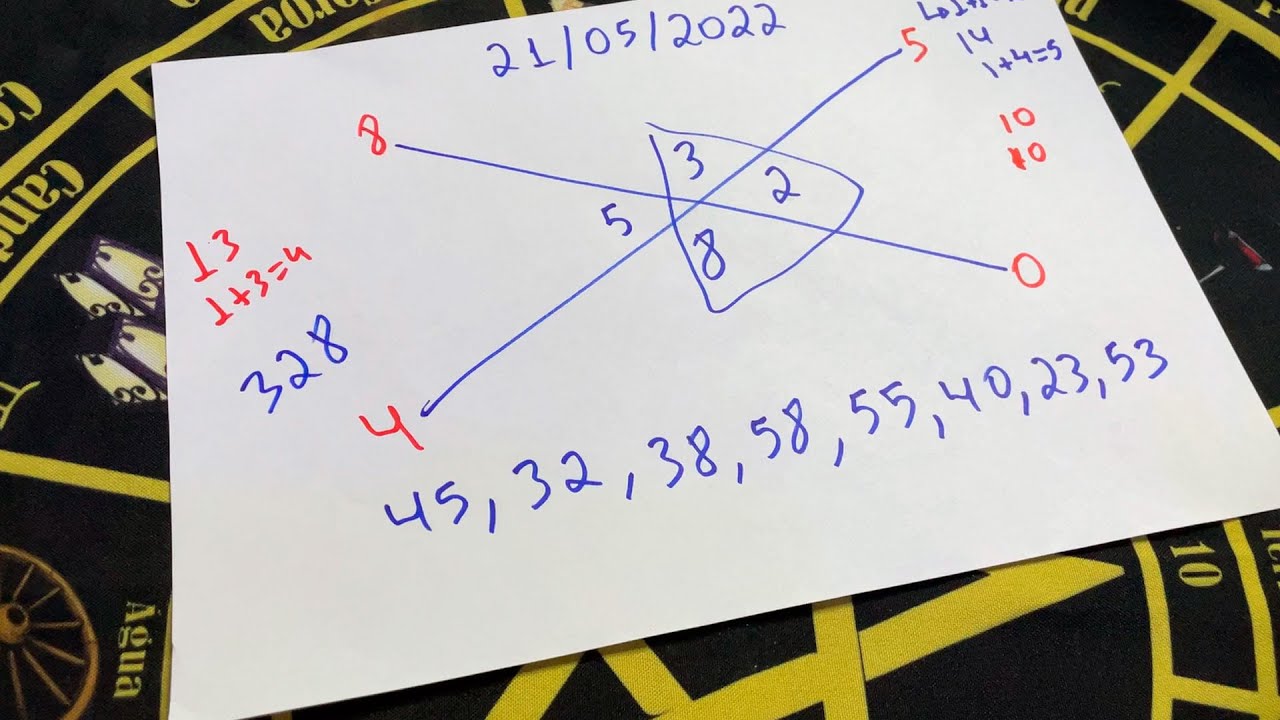 21/05/2022
5
14
1+4=5
8
3
2
10
10
5
8
0
13
1+3=4
328
4
45, 32, 38, 58, 55, 40, 23, 53
Água
10